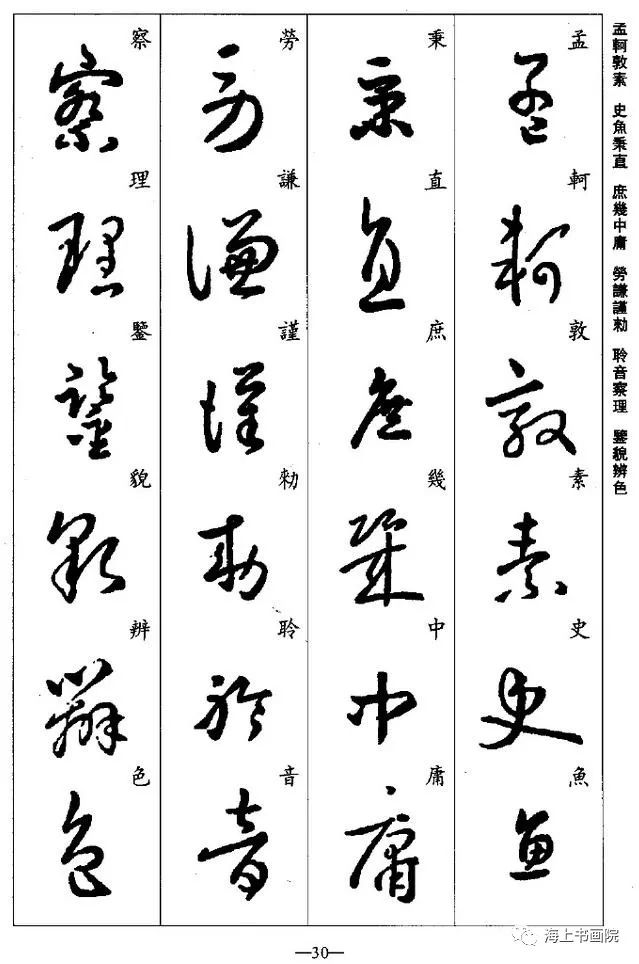 孟軻敦素 史魚秉直 庶幾中庸 勞謙謹勑 聆音察理 鑒貌辨色
孟軻敦素史魚
秉直庶幾中庸
勞謙謹勑聆音
察理鑒貌辨色
海上书画院
—30—